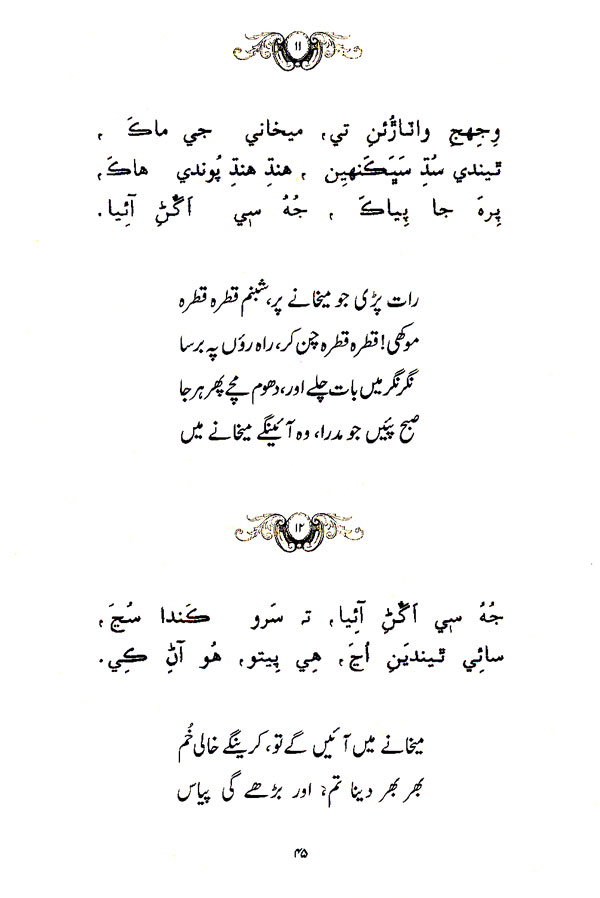 ۱۱
وِجِهجِ واٽاڙُئنِ تي، ميخاني جي ماڪَ ،
ٿيندي سُڌِ سَڀَڪَنهِين ، هنڌِ هنڌِ پُوندي هاڪَ،
پِرهَ جا پِياڪَ ، جُهُ سي اَڱَڻِ آئِيا.
رات پڑی جو میخانے پر، شبنم قطرہ قطرہ
موکھی! قطرہ قطرہ چن کر، راہ رؤں پہ برسا
نگر نگر میں بات چلے اور، دھوم مچے پھر ہر جا
صبح پئیں جو مدرا، وہ آئینگے میخانے میں
۱۲
جُهُ سي اَڱَڻِ آئِيا، تہ سَرو ڪَندا سُڃَ،
سائِي ٿيندِيَنِ اُڃَ، هِي پِيتو، هُو آڻِ ڪِي.
میخانے میں آئیں گے تو، کرینگے خالی خُم
بھر بھر دینا تم، اور بڑھے گی پیاس
۴۵